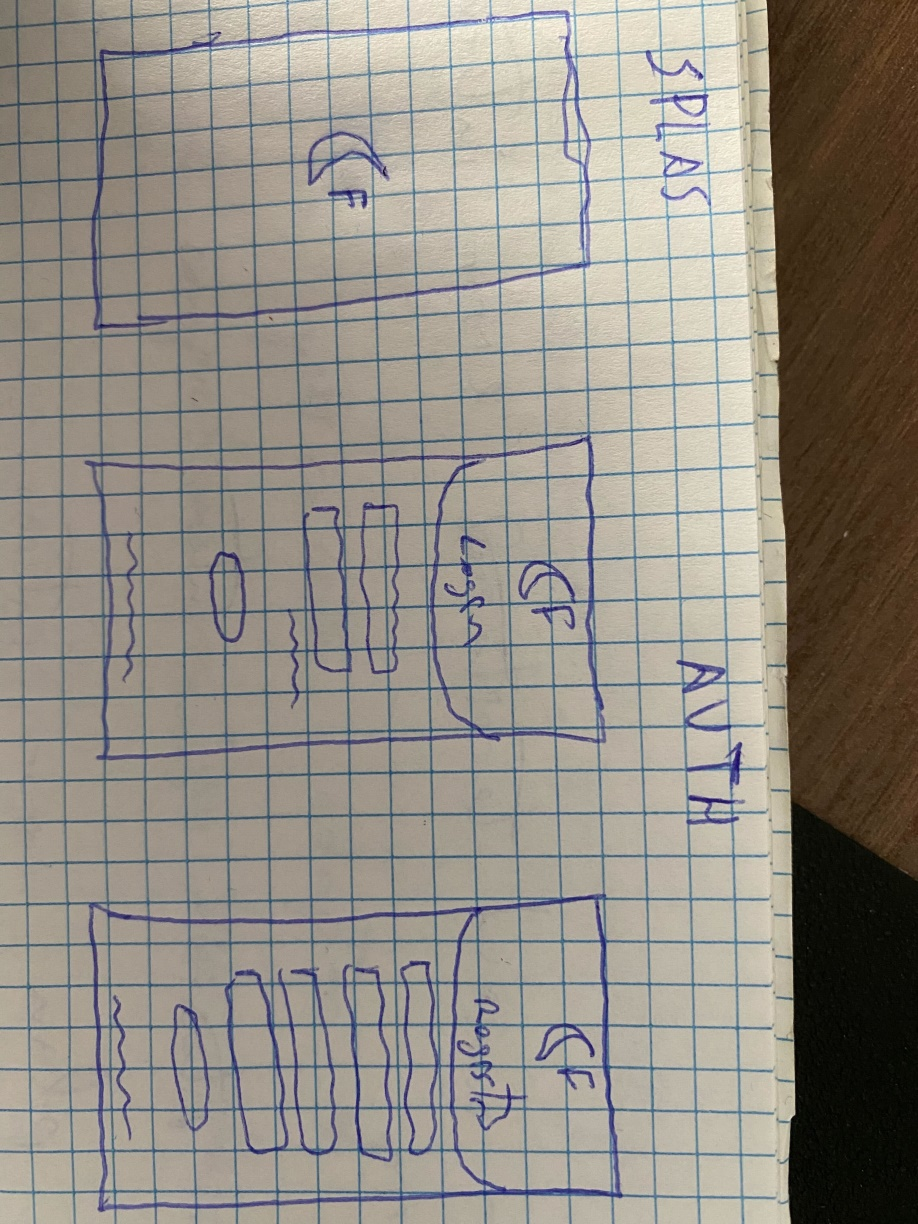 SPLAS
CF
AUTH
CF
Login
CF
Registr